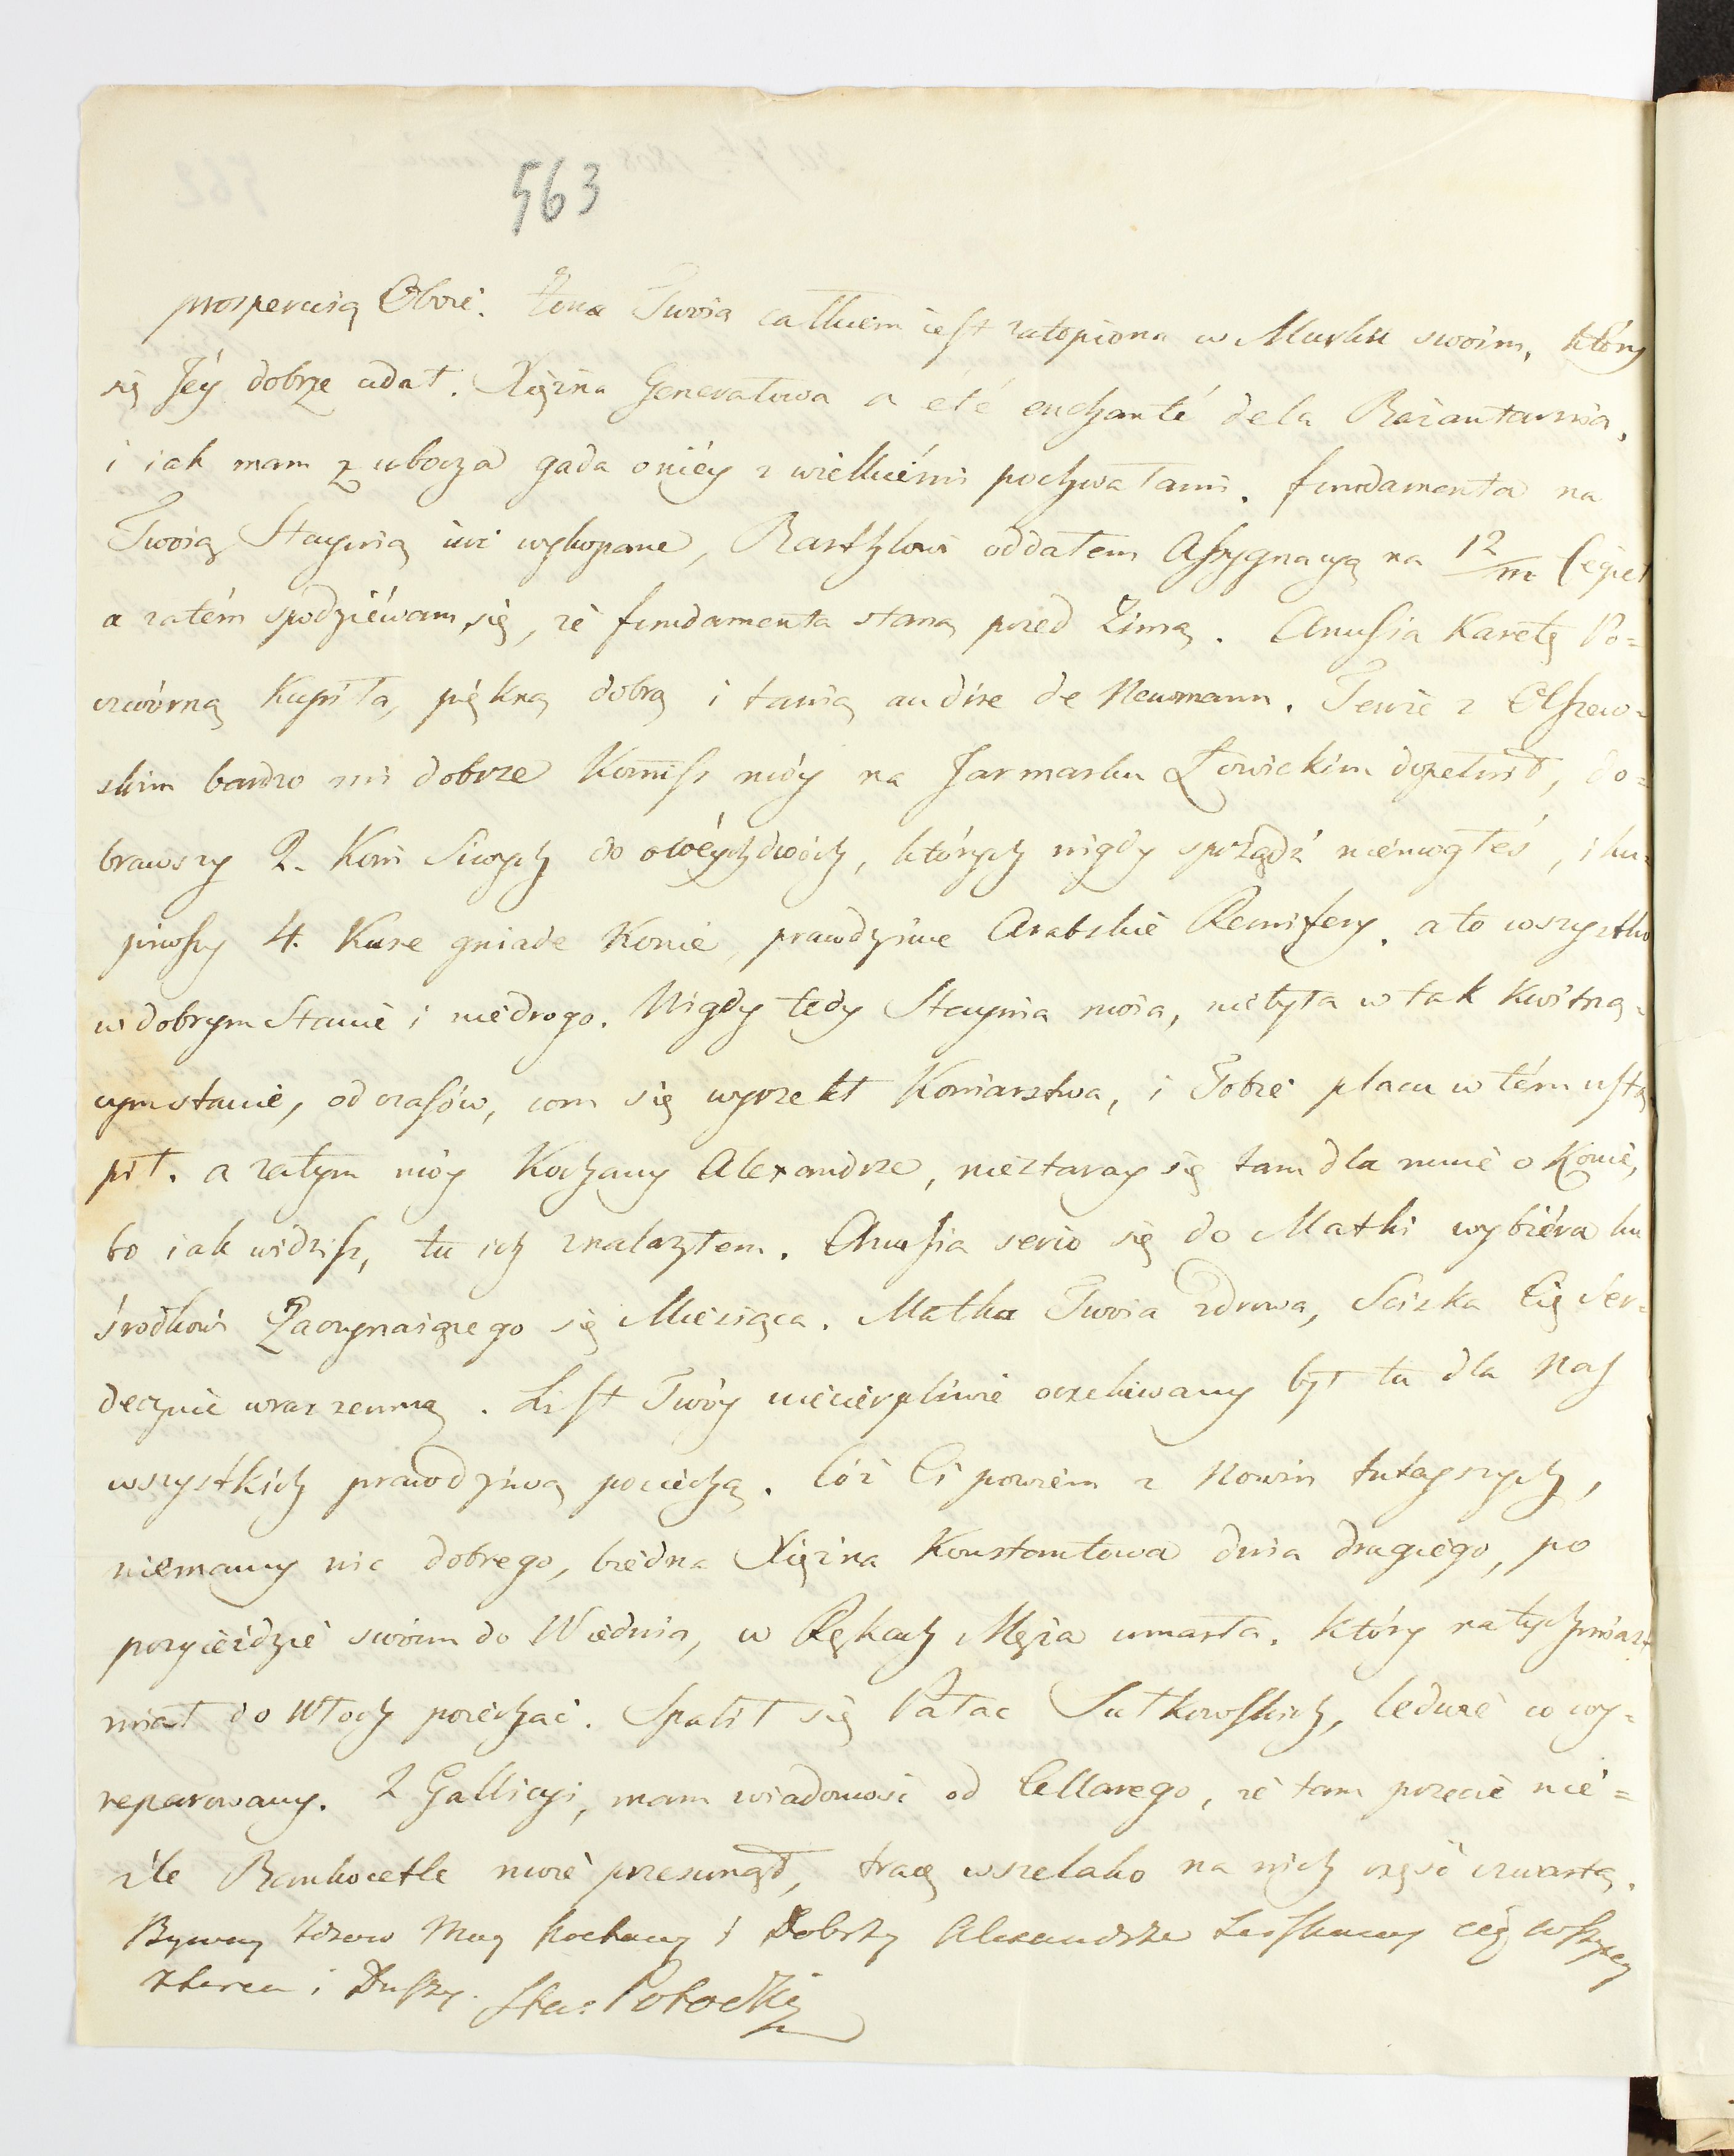 563
prosperuią Obozie. Żona Twoia całkiem iest zatopiona w Murku swoim, który
się Jéy dobrze udał. Xiężna Generałowa a eté enchanté dela Bażantarnia,
i iak mam z ubocza gada oniéy z wielkiémi pochwałami. fundamenta na
Twoią Staynią iuż wykopane, Barthlowi oddałem Assygnacyą na 12/m Cegieł
a zatém spodziéwam się, że fundamenta staną przed Zimą. Anusia Karetę Po=
czwórną Kupiła, piękną dobrą i tanią au dire de Neumann. Tenże z Olszew=
skim bardzo mi dobrze Komiss móy na Jarmarku Łowickim dopełnił, do=
brawszy 2. Koni Siwych do owéych dwóch, których nigdy spożądź niémogłeś, i ku=
piwszy 4. Kare gniade Konie, prawdziwe Arabskié Remifery, a to wszystko
w dobrym Stanié i niédrogo. Nigdy tedy Staynia moia, niébyła w tak Kwitną=
cym stanié, od czasów, com się wyrzekł Koniarstwa, i Tobié placu w tém ustą
pił. a zatym móy Kochany Alexandrze, niéstaray się tam dla mnié o Konié,
bo iak widzisz, tu ich znalazłem. Anusia serio się do Matki wybiéra ku
środkowi Zaczynaiącego się Miesiąca. Matka Twoia zdrowa, Sciska Cię Ser=
decznie wraz zemną. List Twóy niécierpliwié oczekiwany był tu dla nas
wszystkich prawdziwą pociechą. Cóż Ci powiém z Nowin tutayszych,
niémamy nic dobrego, biédna Xiężna Konstantowa dnia drugiégo, po
przyieździé swoim do Wiédnia, w Rękach Męża umarła, który natychmiast
miał do Włoch poiéchać. Spalił się Pałac Sułkowskich, ledwié co wy=
reparowany. Z Gallicyi, mam wiadomość od Cellarego, że tam przecié nié=
źle Bankocetle moié przesunął, tracę wszelako na nich część czwartą.
Byway Zdrow Moy Kochany i Dobry Alexandrze Sciskamy cię wszyscy
z Serca i Duszy. Sta: Potocki